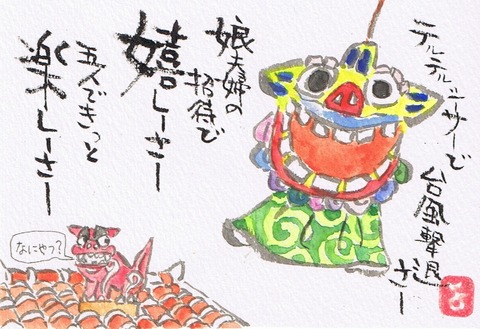 テルテルシーサーで
台風撃退さー
娘夫婦の
招待で
嬉しーさー
五人できっと
楽しーさー
なにやつ?